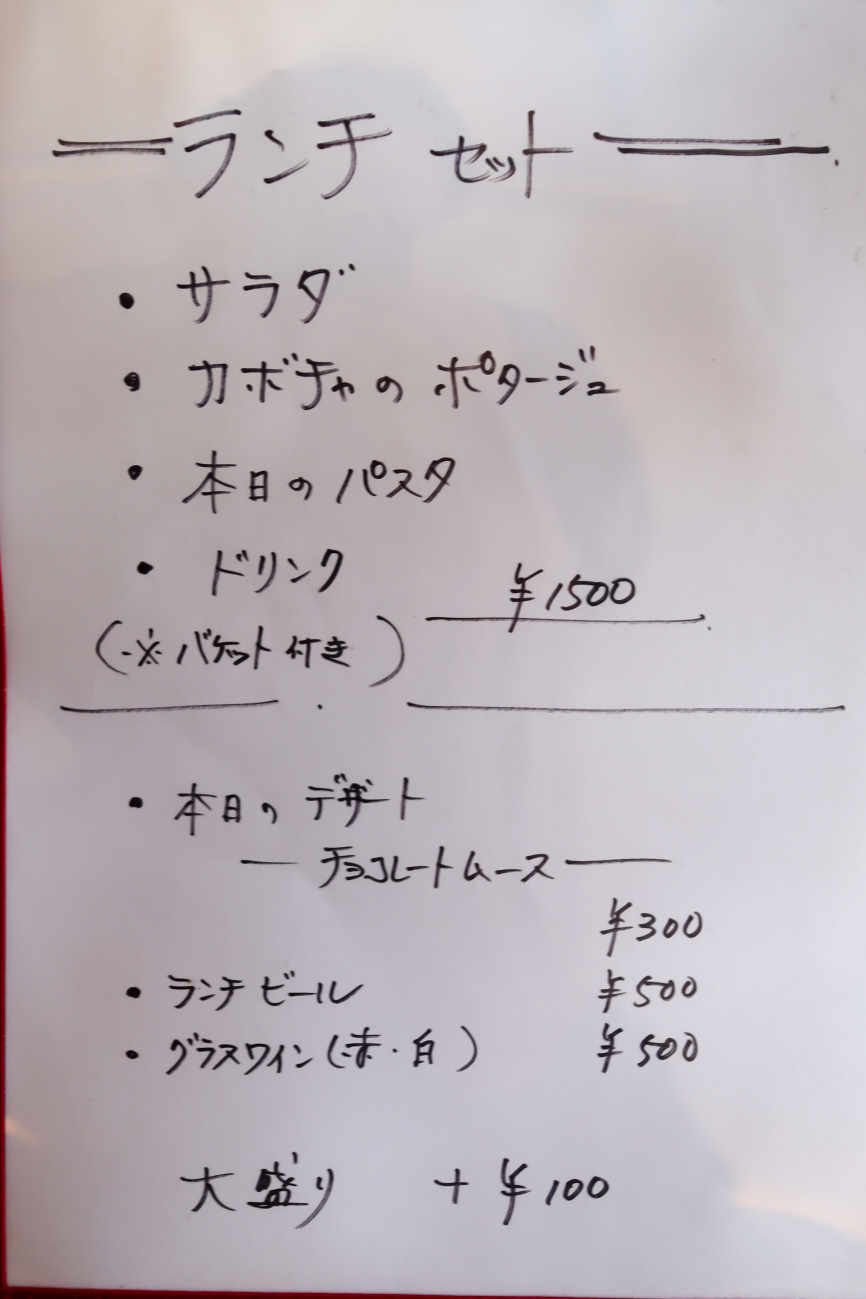 ランチ セット
・サラダ
・カボチャの ポタージュ
・本日の パスタ
・ドリンク ¥1500
(※バゲット付き)
・本日の デザート
― チョコレートムース ―
¥300
・ランチ ビール ¥500
・グラスワイン(赤・白) ¥500
大盛り +¥100